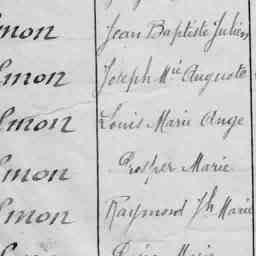 lmon Jean Baptiste Julien
lmon Joseph Mie Auguste
lmon Louis Marie Ange
lmon Prosper Marie
lmon Raymond Jh Marie